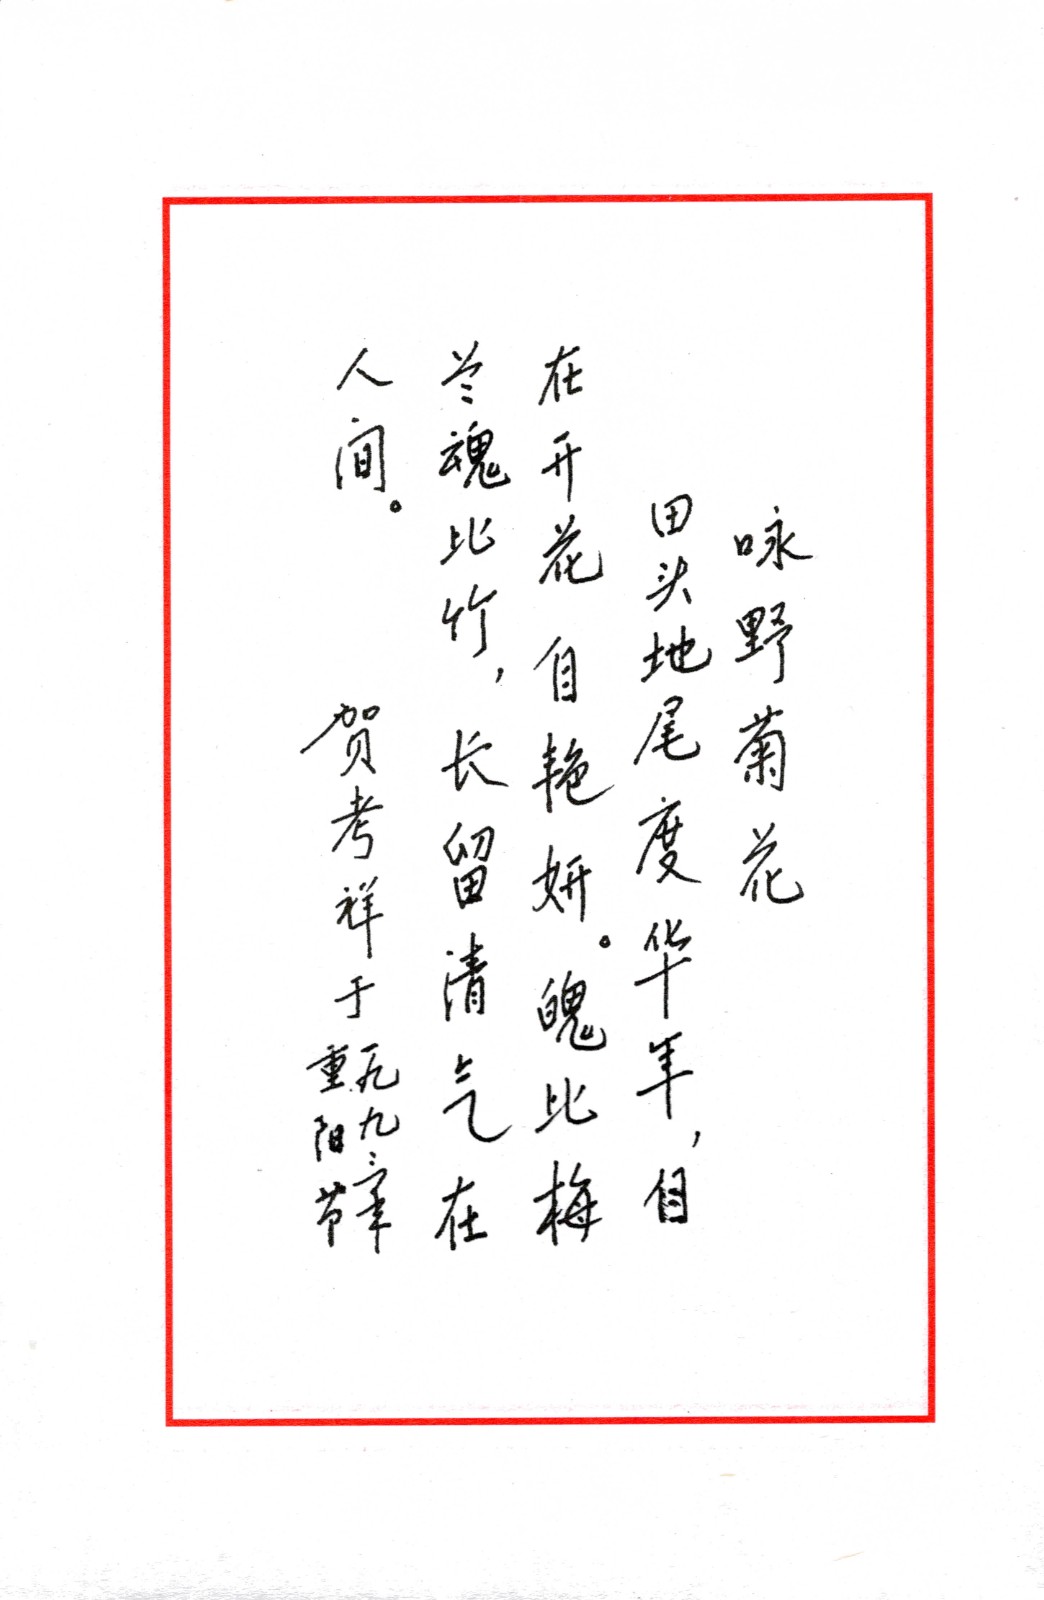 咏野菊花
田头地尾度华年，自
在开花自艳妍。魄比梅
兰魂比竹，长留清气在
人间。
贺考祥于
一九九年
重阳节